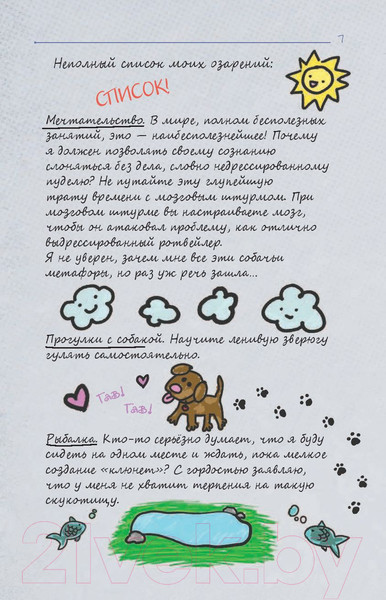 7
Неполный список моих озарений:
СПИСОК!
Мечтательство. В мире, полном бесполезных
занятий, это — наибесполезнейшее! Почему
я должен позволять своему сознанию
слоняться без дела, словно недрессированному
пуделю? Не путайте эту глупейшую
трату времени с мозговым штурмом. При
мозговом штурме вы настраиваете мозг,
чтобы он атаковал проблему, как отлично
выдрессированный ротвейлер.
Я не уверен, зачем мне все эти собачьи
метафоры, но раз уж речь зашла...
Прогулки с собакой. Научите ленивую зверюгу
гулять самостоятельно.
Гав!
Гав!
Рыбалка. Кто-то серьёзно думает, что я буду
сидеть на одном месте и ждать, пока мелкое
создание «клюнет»? С гордостью заявляю,
что у меня не хватит терпения на такую
скукотищу.
21vek.by